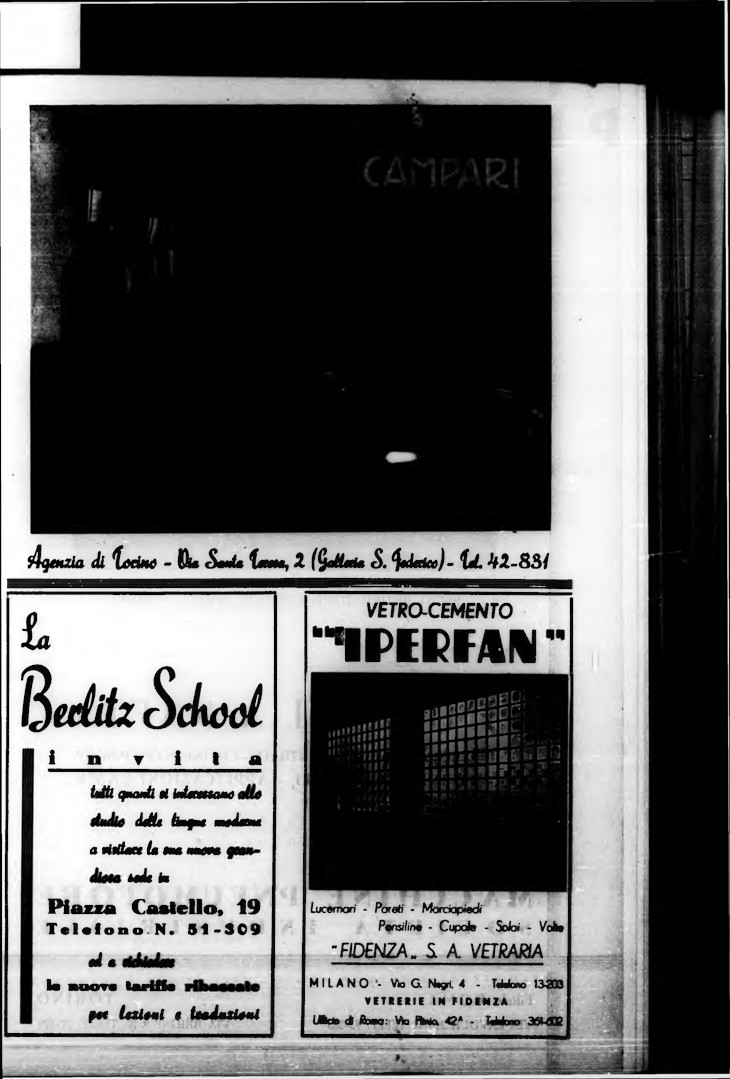 CAMPARI
Agenzia di Torino - Via Santa Teresa, 2 (Galleria S. Federico) - Tel. 42-831
La
Berlitz School
invita
tutti quanti si interessano allo
studio delle lingue moderne
a visitare la sua nuova gran-
diosa sede in
Piazza Castello, 19
Telefono N. 51-309
ed a richiedere
le nuove tariffe ribassate
per lezioni e traduzioni
VETRO-CEMENTO
"IPERFAN"
Lucernari - Pareti - Marciapiedi
Pensiline - Cupole - Solai - Volte
"FIDENZA„ S. A. VETRARIA
MILANO - Via G. Negri, 4 - Telefono 13-203
VETRERIE IN FIDENZA
Ufficio di Roma: Via Plinio, 42A - Telefono 361-602